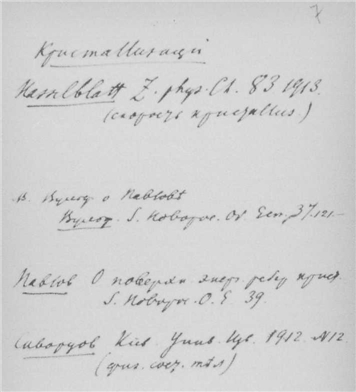 7
Кристаллизаціи
Hasselblatt Z. phys. Ch. 83 1913.
(скорость кристаллиз.)
В. Вульф о Павловѣ
Вульф. З. Новорос. Об. Естн. 37. 121.—
Павлов О поверхн. энерг. ребер крист.
З. Новорос. О. Е 39.
Кіев. Унив. Изв. 1912. N12
(физ. соед. тѣл)